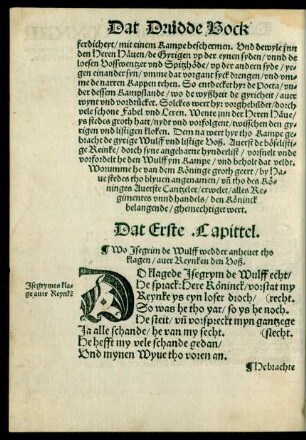 Dat Drüdde Bock
ferdicheyt / mit einem Kampe beschermen. Vnd dewyle jnn
den Heren Häuen / de Gyrigen vp der eynen syden / vnnd de
loesen Voßwentzer vnd Spitzhöde / vp der andern syde / ye-
gen einander syn / vmme dat vorgant syck drengen / vnd vm-
me de narren Kappen tehen. So entdecket hyr de Poeta / vn-
der dessem Kampslande / wo de wyßheit de gyricheit / auer-
wynt vnd vordrücket. Solckes wert hyr vorghebildet / dorch
vele schone Fabel vnd Leren. Wente jnn der Heren Häue /
ys stedes groth hatt / nydt vnd vorfolgent / twisschen den gy-
rigen vnd listigen flöken. Dem na wert hyr tho Kampe ge-
bracht de gyrige Wulff vnd listige Voß. Auerst de böse listi-
ge Reinke / dorch syne angebarne hynderlist / vorsnelt vnde
vorfordelt den Wulff ym Kampe / vnd beholt dat veldt.
Worumme he van dem Köninge groth geert / by Ha-
ue stedes tho blyuen angenamen / vñ tho des Kö-
ninges Auerste Cantzeler / erwelet / alles Re-
gimentes vnnd handels / den Köninck
belangende / ghemechtiget wert.
Dat Erste Capittel.
¶ Wo Isegrim de Wulff wedder anheuet tho
klagen / auer Reynken den Voß.
Isegrymes kla-
ge auer Reynke
DO klagede Isegrym de Wulff echt /
He sprack: Here Köninck / vorstat my
Reynke ys eyn loser droch / (recht.
So was he tho yar / so ys he noch.
He steit / vñ vorspreckt myn gantze ge
Ja alle schande / he van my secht. (slecht.
He hefft my vele schande gedan /
Vnd mynen Wyue tho voren an.
¶ He brachte